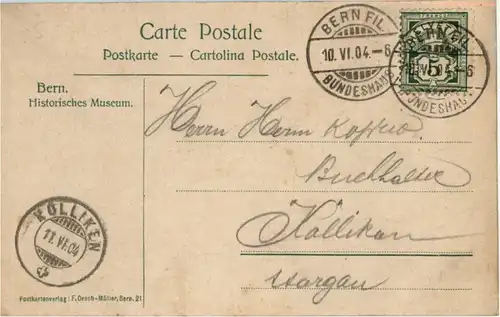 Carte Postale
Postkarte — Cartolina Postale.
BERN FIL.
10. VI. 04. – 6
BUNDESHAUS
BERN FIL.
10. VI. 04. – 6
BUNDESHAUS
5
Bern.
Historisches Museum.
Herrn Herrn
Buchhalter
Kölliken
Aargau
KÖLLIKEN
11. VI. 04
Postkartenverlag: F. Oesch-Müller, Bern. 21